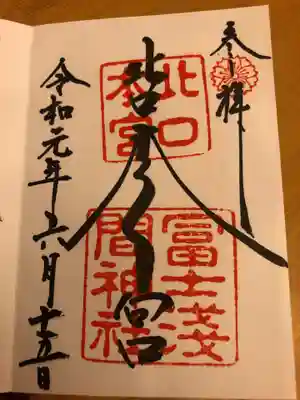 奉拝
北口本宮
北口
本宮
冨士浅
間神社
令和元年六月十五日